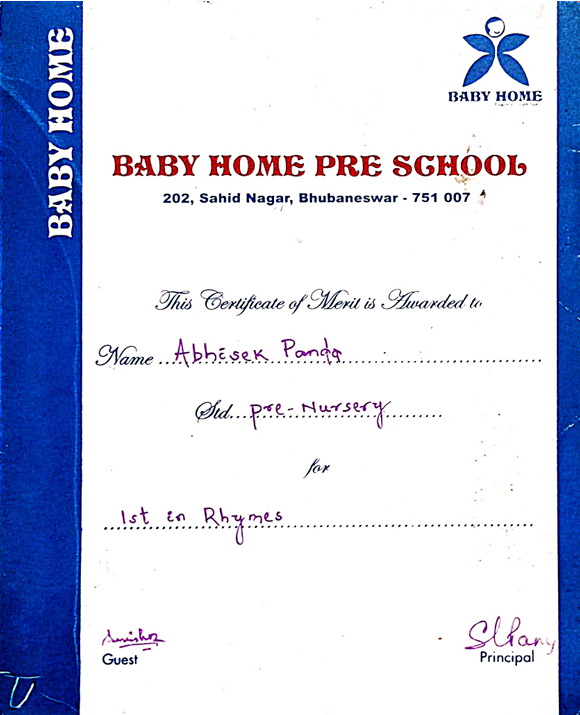 BABY HOME
BABY HOME
BABY HOME PRE SCHOOL
202, Sahid Nagar, Bhubaneswar - 751 007
This Certificate of Merit is Awarded to
Name Abhisek Panda
Std. Pre-Nursery
for
1st in Rhymes
Guest
Principal